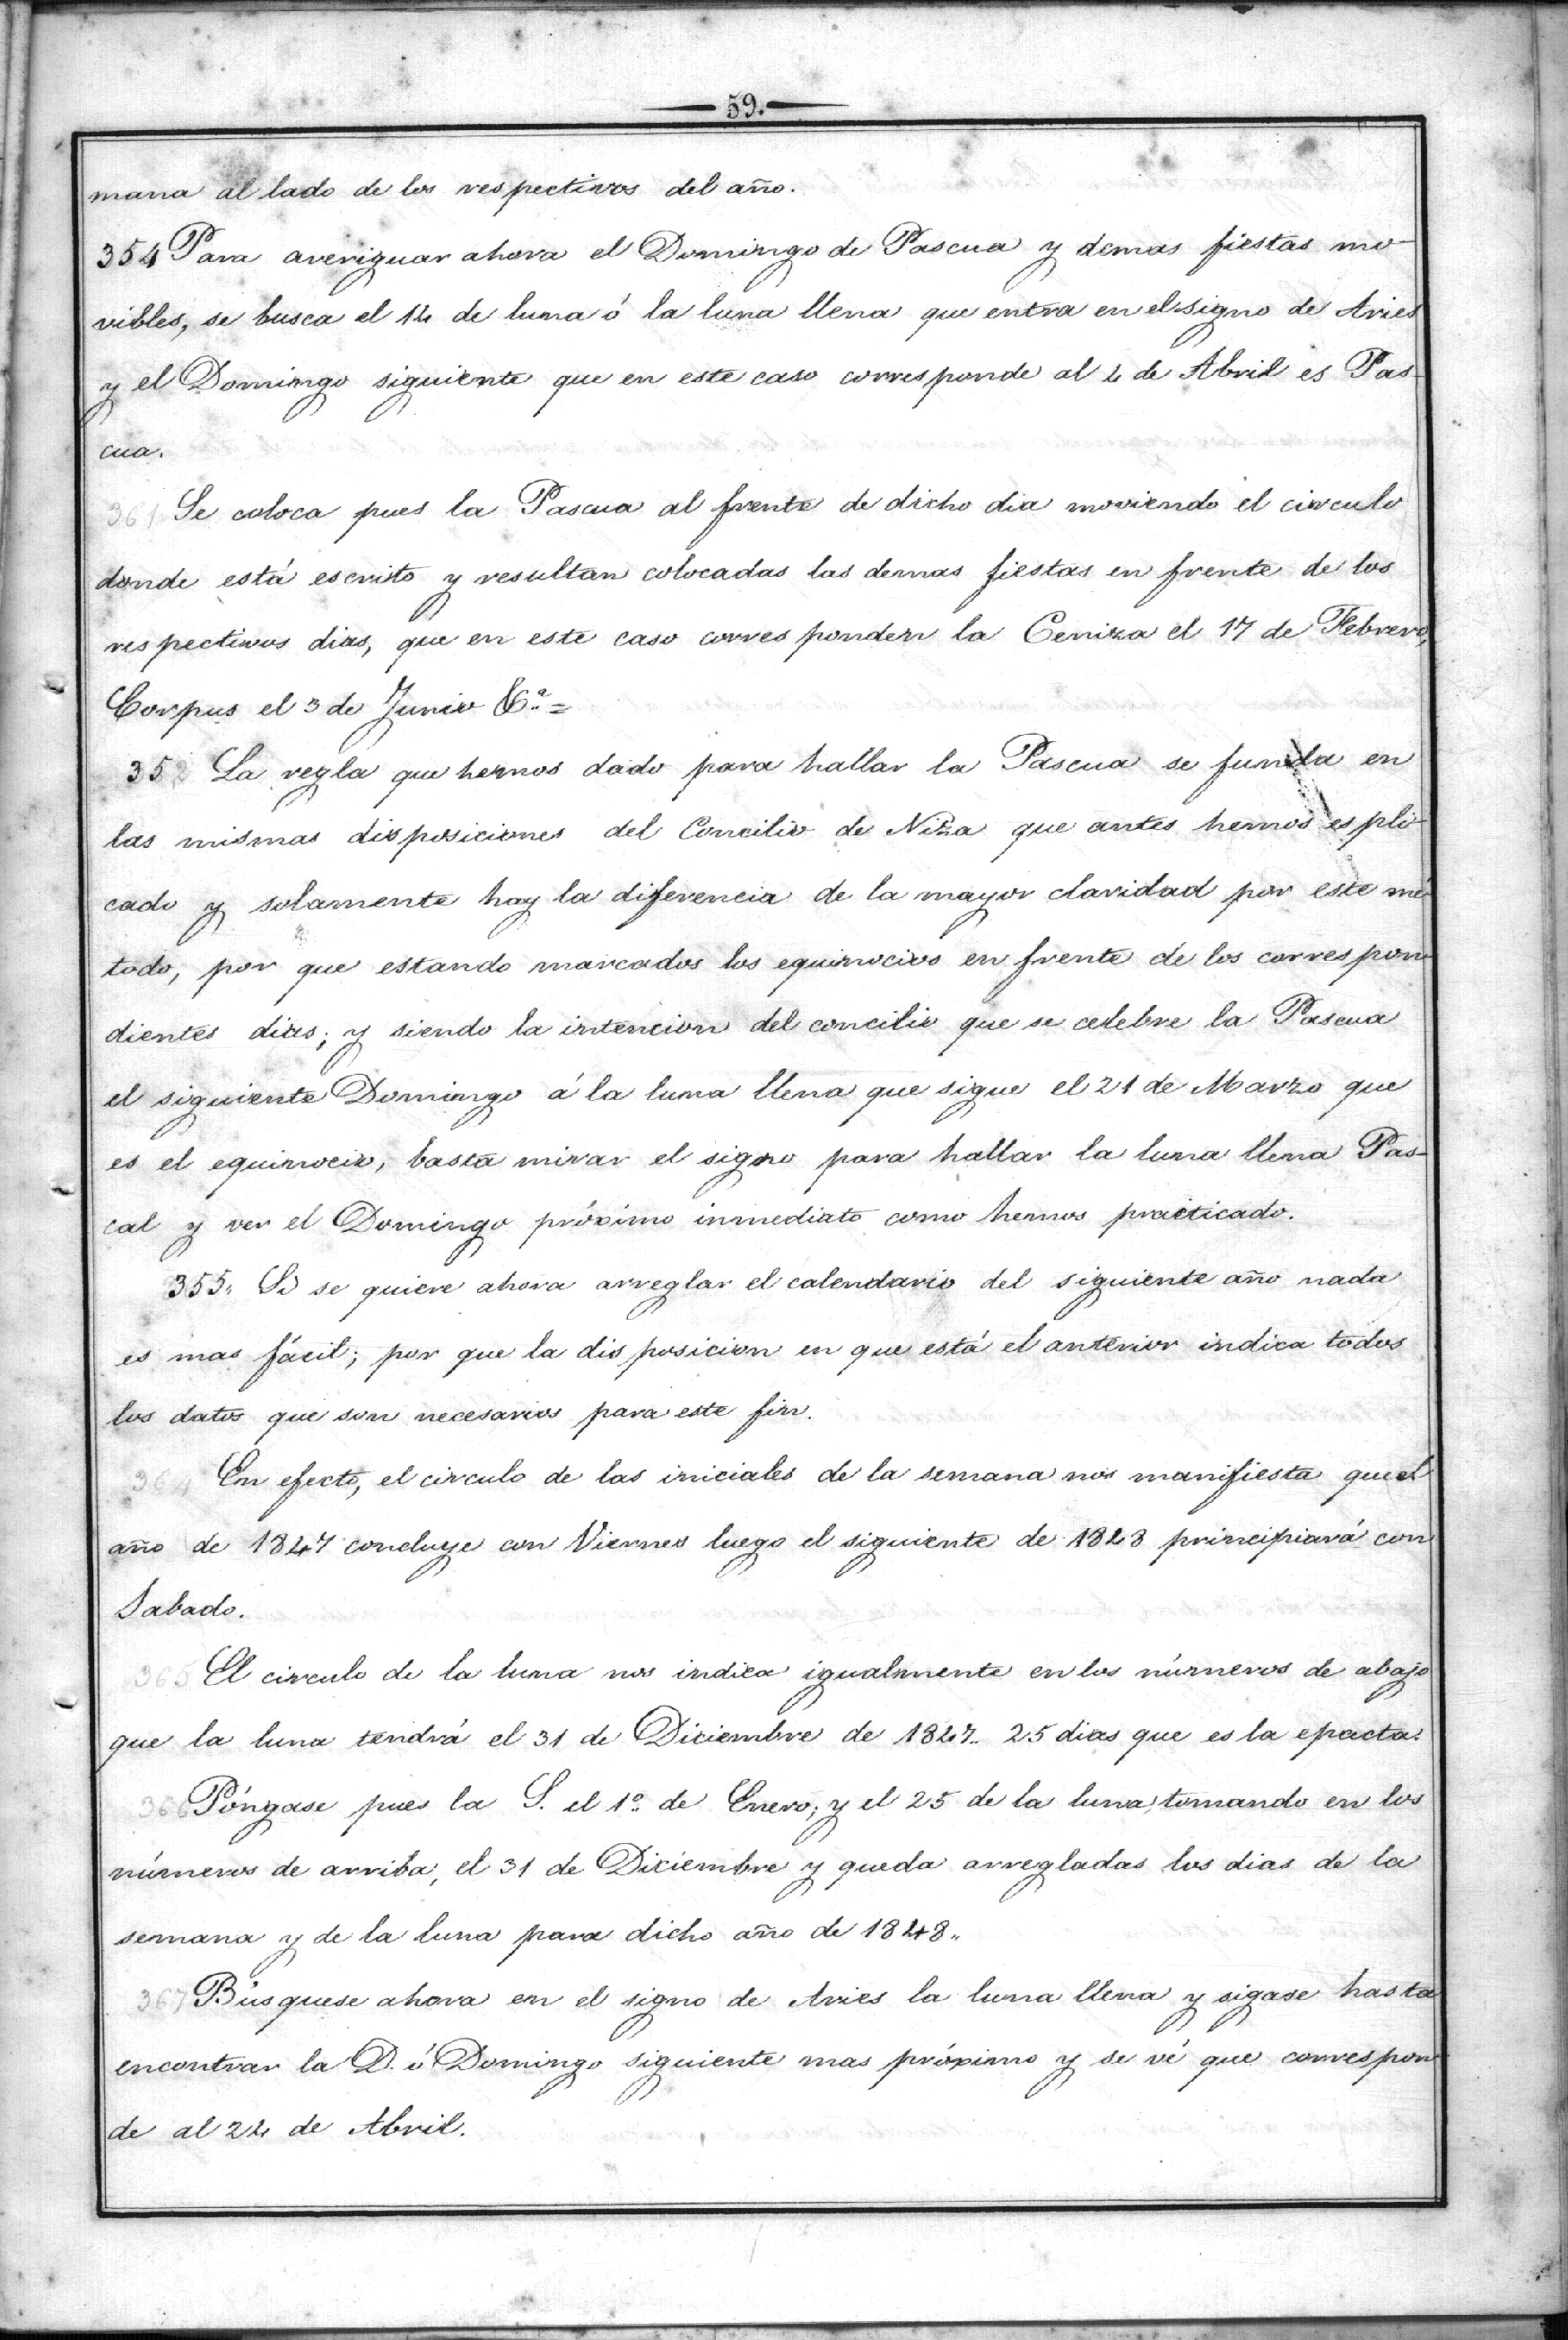 59.
mana al lado de los respectivos del año.
354 Para averiguar ahora el Domingo de Pascua y demas fiestas mo-
vibles, se busca el 14 de luna ó la luna llena que entra en el signo de Aries
y el Domingo siguiente que en este caso corresponde al 4 de Abril es Pas-
cua.
361 Se coloca pues la Pascua al frente de dicho dia moviendo el circulo
donde está escrito y resultan colocadas las demas fiestas en frente de los
respectivos dias, que en este caso corresponden la Ceniza el 17 de Febrero,
Corpus el 3 de Junio &ª =
35 La regla que hemos dado para hallar la Pascua se funda en
las mismas disposiciones del Concilio de Niza que antes hemos espli-
cado y solamente hay la diferencia de la mayor claridad por este mé
todo, por que estando marcados los equinocios en frente de los correspon-
dientes dias; y siendo la intencion del concilio que se celebre la Pascua
el siguiente Domingo á la luna llena que sigue el 21 de Marzo que
es el equinocio, basta mirar el signo para hallar la luna llena Pas-
cal y ver el Domingo próximo inmediato como hemos practicado.
355. Si se quiere ahora arreglar el calendario del siguiente año nada
es mas fácil; por que la disposicion en que está el anterior indica todos
los datos que son necesarios para este fin.
364 En efecto, el circulo de las iniciales de la semana nos manifiesta que el
año de 1847 concluye con Viernes luego el siguiente de 1848 principiará con
Sabado.
365 El circulo de la luna nos indica igualmente en los números de abajo
que la luna tendrá el 31 de Diciembre de 1847.. 25 dias que es la epacta.
366 Póngase pues la S. el 1º de Enero; y el 25 de la luna, tomando en los
números de arriba, el 31 de Diciembre y queda arregladas los dias de la
semana y de la luna para dicho año de 1848..
367 Búsquese ahora en el signo de Aries la luna llena y sigase hasta
encontrar la D. ó Domingo siguiente mas próximo y se vé que correspon-
de al 24 de Abril.